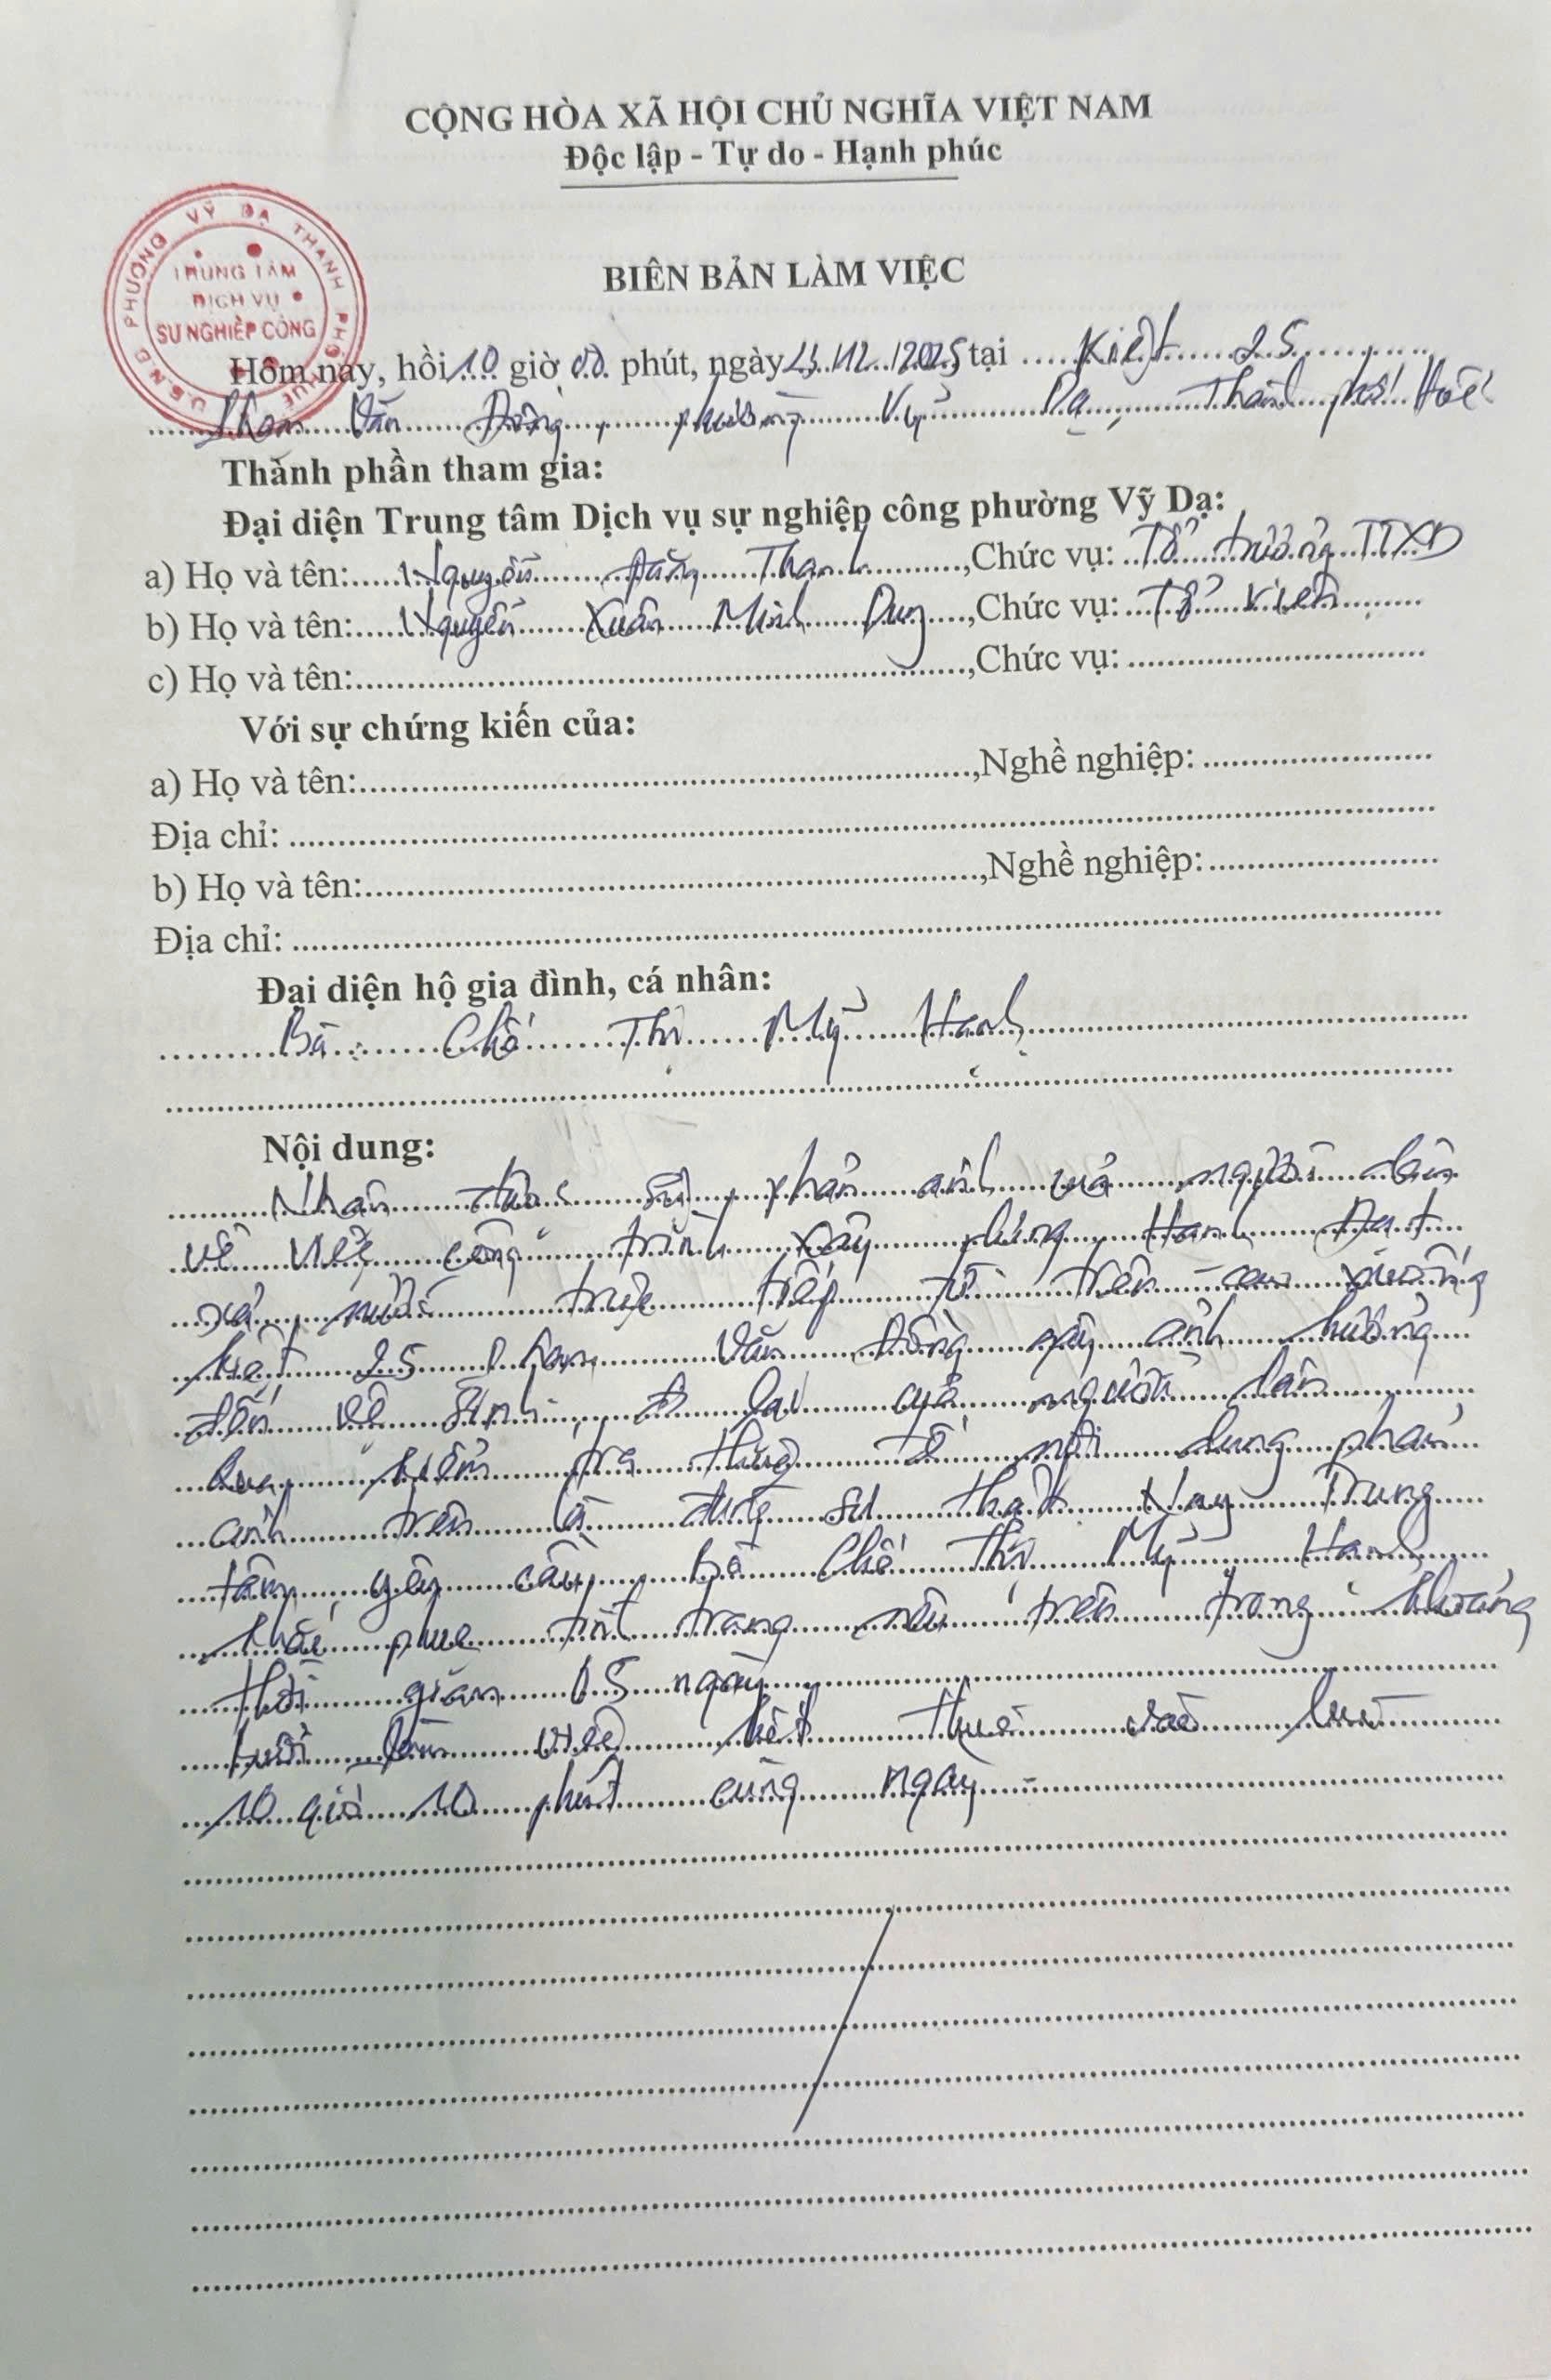 CỘNG HÒA XÃ HỘI CHỦ NGHĨA VIỆT NAM
Độc lập - Tự do - Hạnh phúc
U.B.N.D PHƯỜNG VỸ DẠ THÀNH PHỐ HUẾ
TRUNG TÂM
DỊCH VỤ
SỰ NGHIỆP CÔNG
BIÊN BẢN LÀM VIỆC
Hôm nay, hồi 10 giờ 00 phút, ngày /12/2025 tại Kiệt 25
Phạm Văn Đồng, phường Vỹ Dạ, Thành phố Huế
Thành phần tham gia:
Đại diện Trung tâm Dịch vụ sự nghiệp công phường Vỹ Dạ:
a) Họ và tên: Nguyễn Thanh, Chức vụ: Tổ trưởng TTXD
b) Họ và tên: Nguyễn Xuân Minh Duy, Chức vụ: Tổ viên
c) Họ và tên:, Chức vụ:
Với sự chứng kiến của:
a) Họ và tên:, Nghề nghiệp:
Địa chỉ:
b) Họ và tên:, Nghề nghiệp:
Địa chỉ:
Đại diện hộ gia đình, cá nhân:
Bà: Chế Thị Mỹ Hạnh
Nội dung:
Nhận được sự phản ánh của người dân
về việc công trình xây dựng Hạnh Đạt
xả nước trực tiếp từ trên cao xuống
kiệt 25 Phạm Văn Đồng gây ảnh hưởng
đến vệ sinh, đi lại của người dân
Qua kiểm tra thực tế nội dung phản
ánh trên là đúng sự thật. Nay Trung
tâm yêu cầu bà Chế Thị Mỹ Hạnh
khắc phục tình trạng nêu trên trong khoảng
thời gian 05 ngày
Buổi làm việc kết thúc vào lúc
10 giờ 10 phút cùng ngày